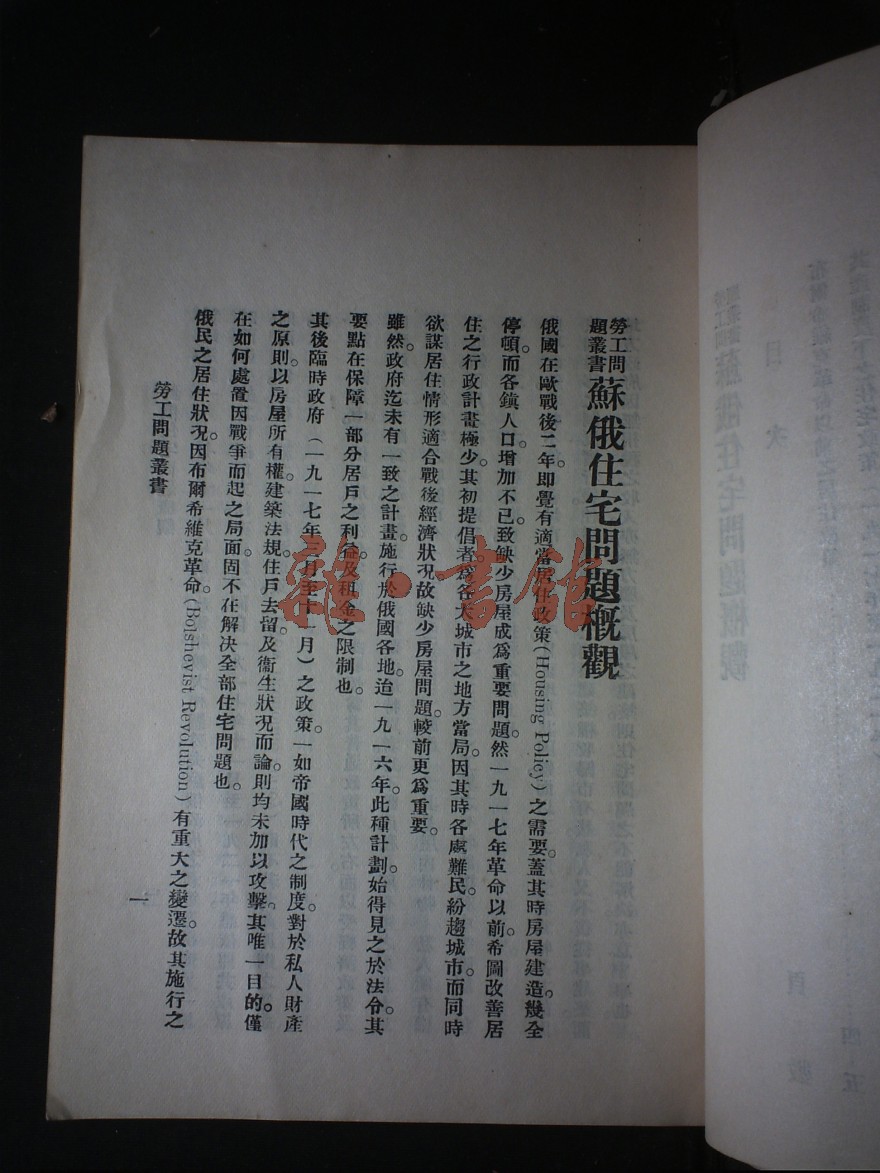 勞工問
題叢書
蘇俄住宅問題概觀
俄國在歐戰後二年。卽覺有適當居住政策(Housing Policy)之需要。蓋其時房屋建造。幾全
停頓。而各鎮人口。增加不已。致缺少房屋成爲重要問題。然一九一七年革命以前。希圖改善居
住之行政計畫極少。其初提倡者。爲各大城市之地方當局。因其時各處難民。紛趨城市。而同時
欲謀居住情形適合戰後經濟狀況。故缺少房屋問題。較前更爲重要。
雖然。政府迄未有一致之計畫。施行於俄國各地。迨一九一六年。此種計劃。始得見之於法令。其
要點在保障一部分居戶之利益。及租金之限制也。
其後臨時政府（一九一七年三月至十一月）之政策。一如帝國時代之制度。對於私人財產
之原則。以房屋所有權。建築法規。住戶去留。及衞生狀況而論。則均未加以攻擊。其唯一目的。僅
在如何處置因戰爭而起之局面。固不在解決全部住宅問題也。
俄民之居住狀况。因布爾希維克革命。(Bolshevist Revolution)有重大之變遷。故其施行之
勞工問題叢書
一
雜·書館
目
次
頁
數
四
五